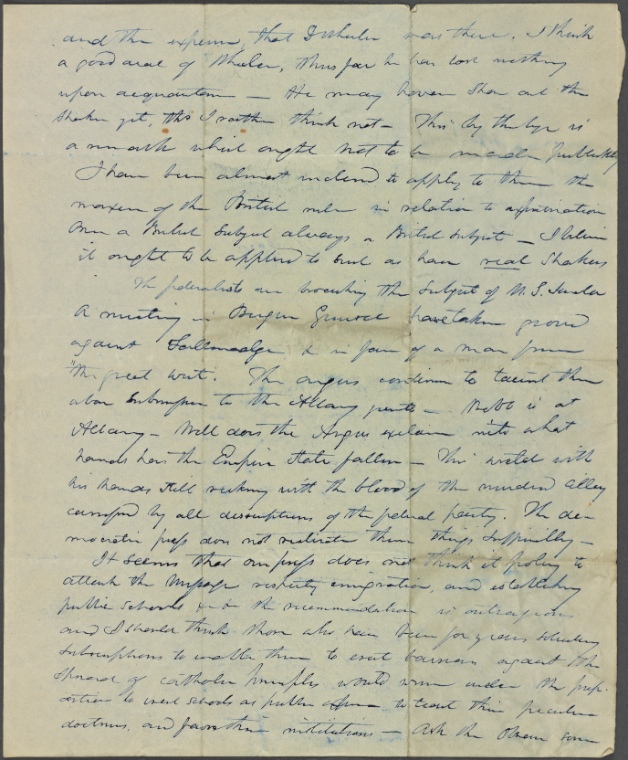 and the expense, that Wheeler was there. I think
a good deal of Wheeler, thus far he has lost nothing
upon acquaintance — He may have shown out the
Shaker yet, tho I rather think not — This by the bye is
a remark which ought not to be made publickly
I have been almost inclined to apply to them the
maxim of the British in relation to expatriation
once a British subject always a British subject — I believe
it ought to be applied to such as have real Shakers
The federalists are broaching the subject of U.S. Senator
A meeting in have taken ground
against Tallmadge & in favor of a man from
"the great west". The argus continues to taunt them
about to the Albany — Webb is at
Albany — Well does the Argus exclaim into what
hands has the Empire State fallen — This with
his hands still reeking with the blood of the murdered Cilley
caressed by all descriptions of the federal party. The de-
mocratic press does not reiterate these things sufficiently —
It seems that our press does not think it policy to
attack the Message respecting emigration, and establishing
public schools the recommendation is outrageous
and I should think those who have been for years soliciting
subscriptions to enable them to erect barriers against the
spread of catholic principles would under the prop-
osition to erect schools at public to teach their peculiar
doctrines, and favor their institutions — Ask the some